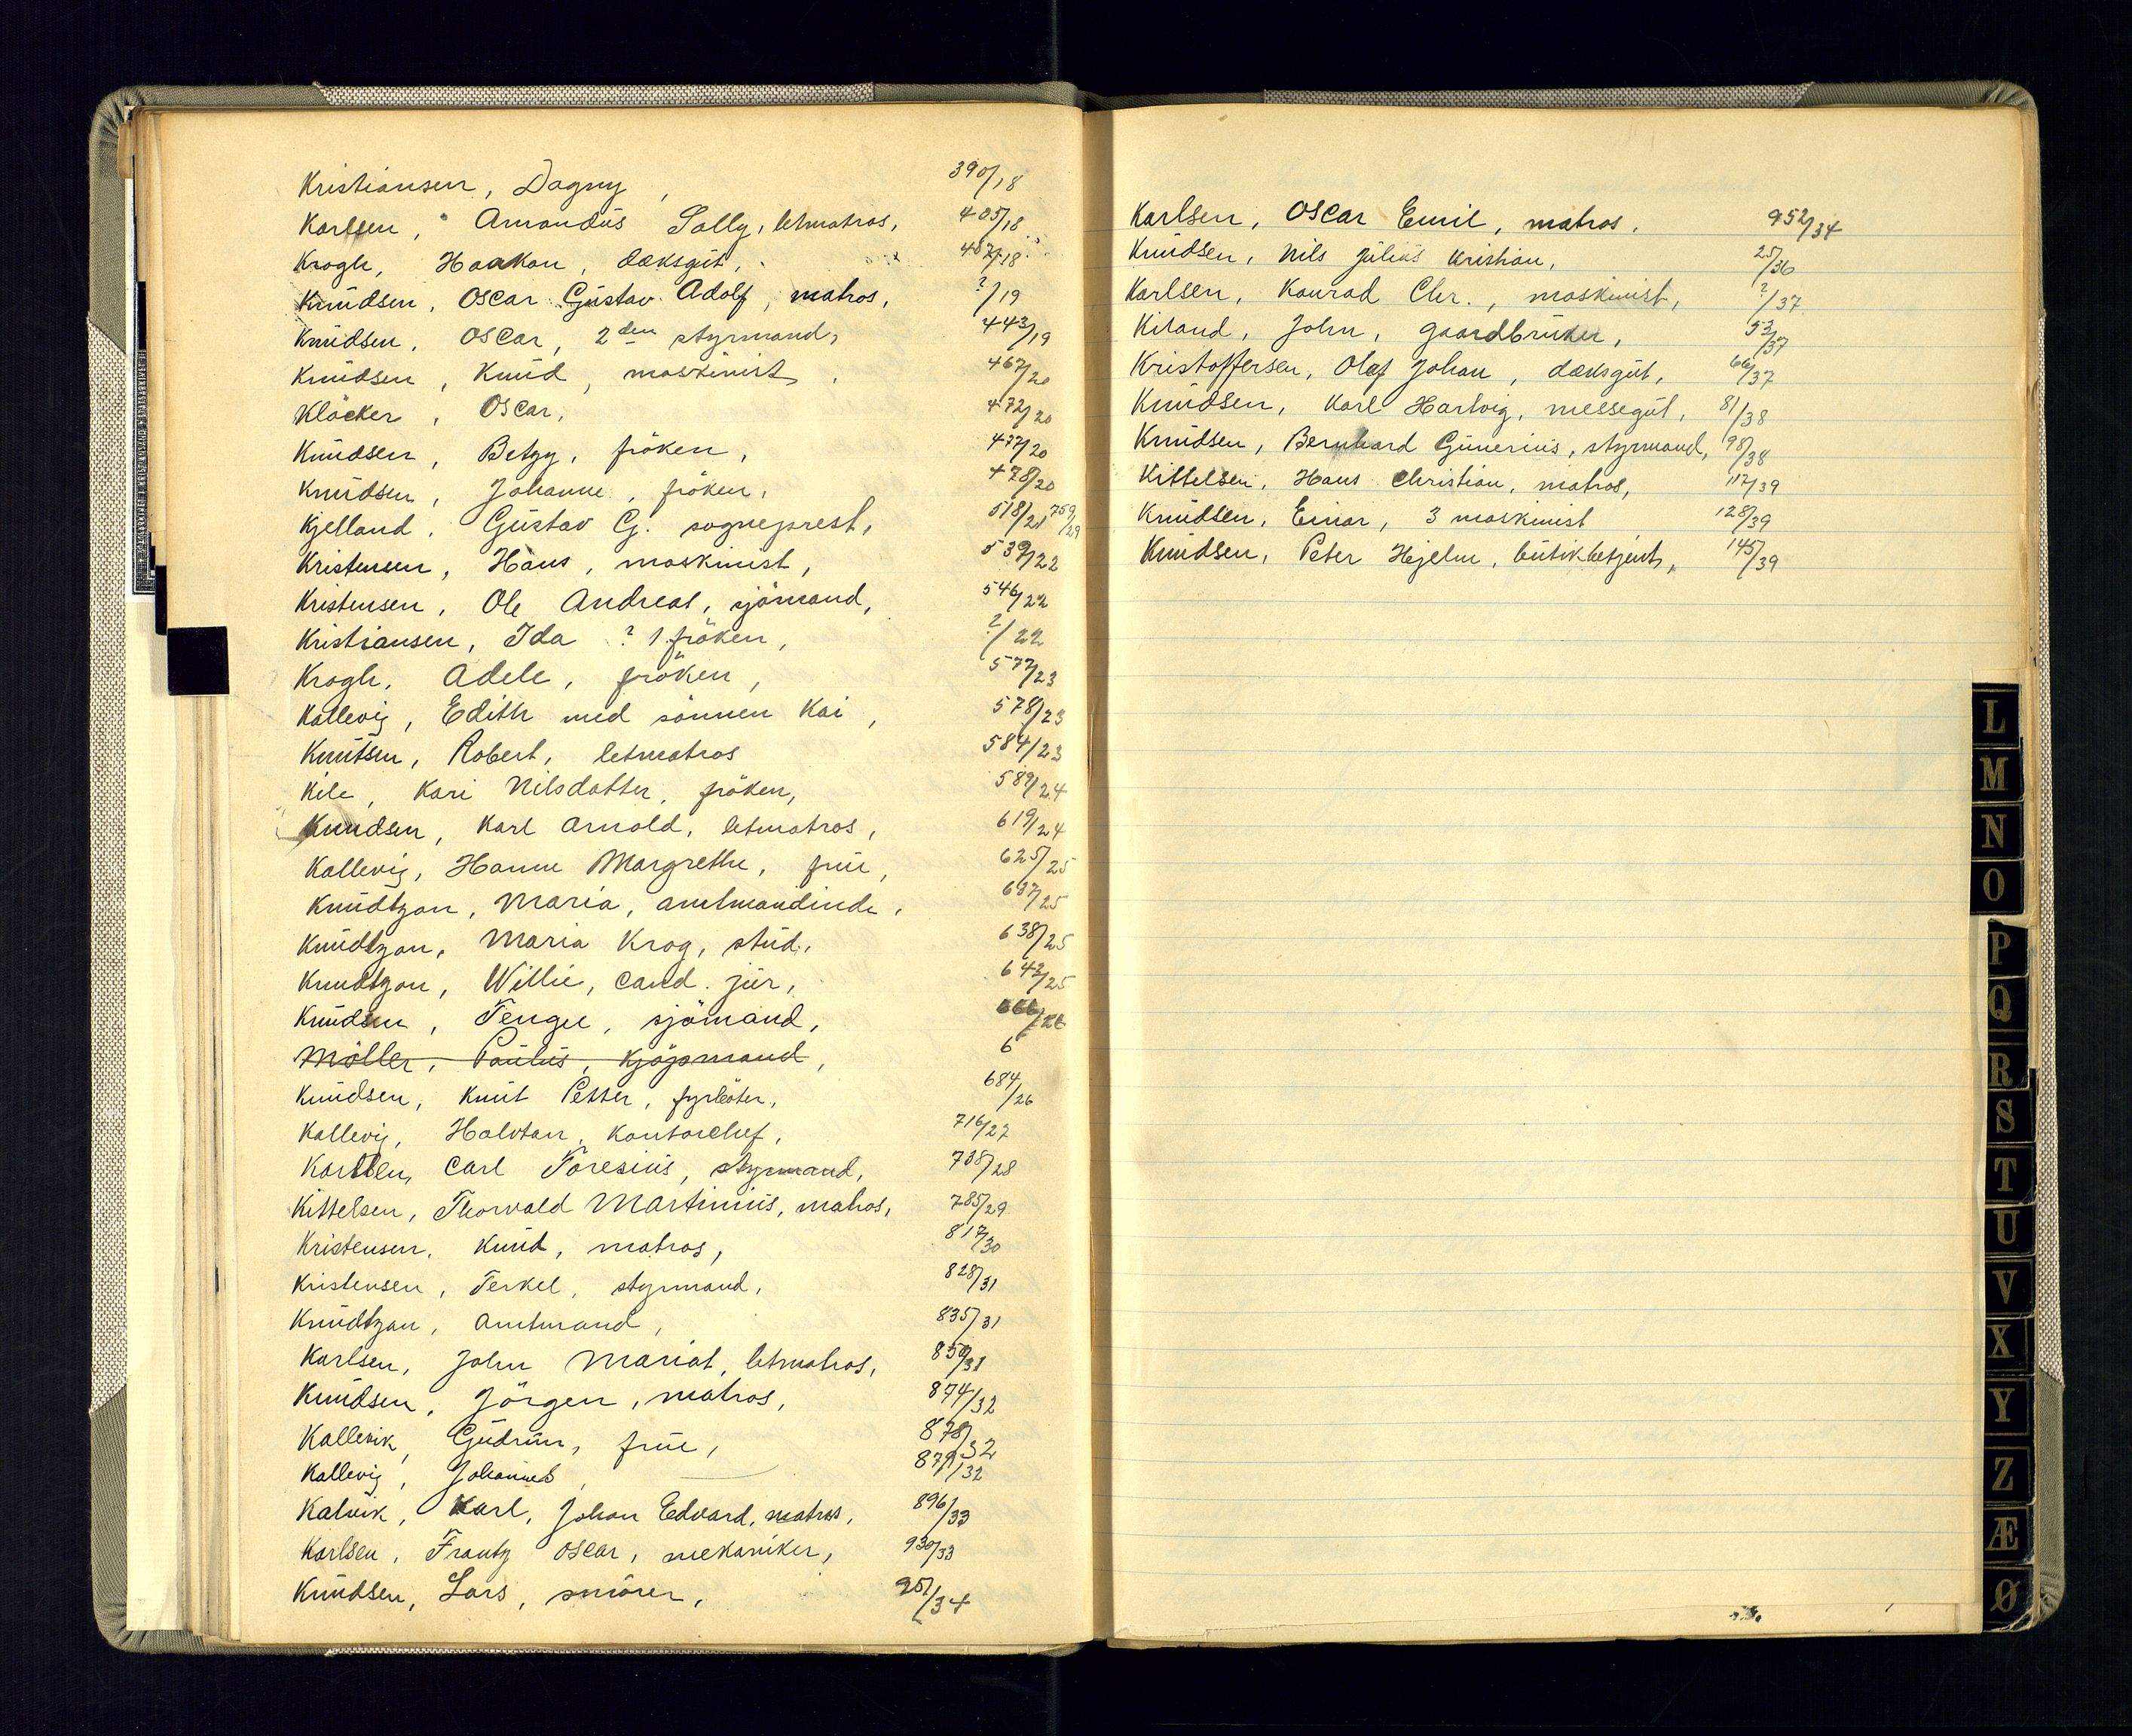 Kristiansen, Dagny, 390/18
Karlsen, Amandus Sally, letmatros, 405/18
Krogh, Haakon, dæksgut, 407/18
Knudsen, Oscar Gustav Adolf, matros, ?/19
Knudsen, Oscar, 2den styrmand, 443/19
Knudsen, Knud, maskinist, 467/20
Klöcker, Oscar, 472/20
Knudsen, Betzy, fröken, 477/20
Knudsen, Johanne, fröken, 478/20
Kjelland, Gustav G. sogneprest, 518/21 759/29
Kristensen, Hans, maskinist, 539/22
Kristensen, Ole Andreas, sjömand, 546/22
Kristiansen, Ida ? 1 fröken, ?/22
Krogh, Adele, fröken, 577/23
Kallevig, Edith med sönnen Kai, 578/23
Knutsen, Robert, letmatros 584/23
Kile, Kari Nilsdatter, fröken, 589/24
Knudsen, Karl Arnold, letmatros, 619/24
Kallevig, Hanne Margrethe, frue, 625/25
Knudtzon, Maria, amtmandinde, 637/25
Knudtzon, Maria Krog, stud., 638/25
Knudtzon, Willie, cand. jur, 643/25
Knudsen, Tengel, sjömand, 666/26
Möller, Paulus, kjöpmand, 6
Knudsen, Knut Petter, fyrböter, 684/26
Kallevig, Halvtan, Kontorchef, 716/27
Karlsen, Carl Toresius, styrmand, 738/28
Kittelsen, Thorvald Martinius, matros, 785/29
Kristensen, Knud, matros, 817/30
Kristensen, Terkel, styrmand, 828/31
Knudtzon, amtmand, 835/31
Karlsen, John Mariat, letmatros, 859/31
Knudsen, Jörgen, matros, 874/32
Kallevik, Gudrun, frue, 878/32
Kallevig, Johannes, 879/32
Kalvik, Karl, Johan Edvard, matros, 896/33
Karlsen, Frantz Oscar, mekaniker, 930/33
Knudsen, Lars, smörer, 951/34
Karlsen, Oscar Emil, matros. 952/34
Knudsen, Nils Julius Kristian, 25/36
Karlsen, Konrad Chr., maskinist, ?/37
Kiland, John, gaardbruker, 53/37
Kristoffersen, Olaf Johan, dæksgut, 66/37
Knudsen, Karl Hartvig, messegut, 81/38
Knudsen, Bernhard Gunerius, styrmand, 98/38
Kittelsen, Hans Christian, matros, 117/39
Knudsen, Einar, 3 maskinist 128/39
Knudsen, Peter Hjelm, butikbetjent, 145/39
L
M
N
O
P
Q
R
S
T
U
V
X
Y
Z
Æ
Ø